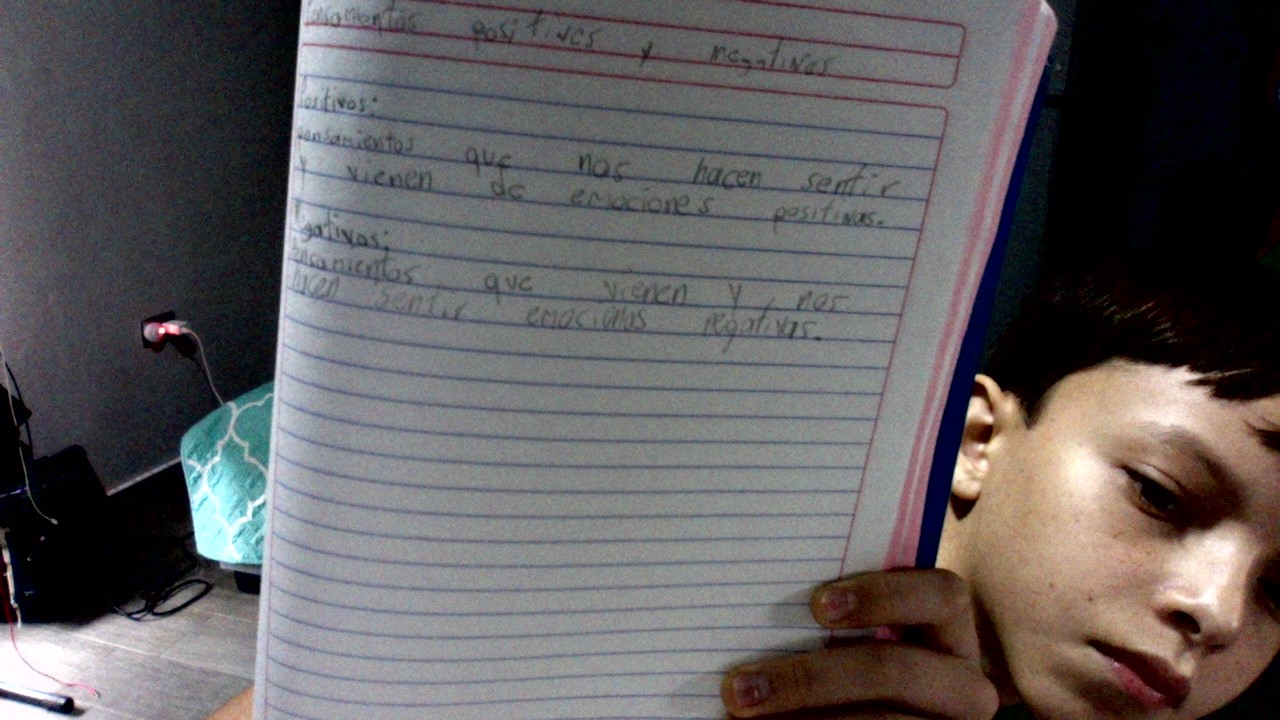 Pensamientos positivos y negativos
Positivos:
pensamientos que nos hacen sentir
y vienen de emociones positivas.
Negativos:
pensamientos que vienen y nos
hacen sentir emocionas negativas.